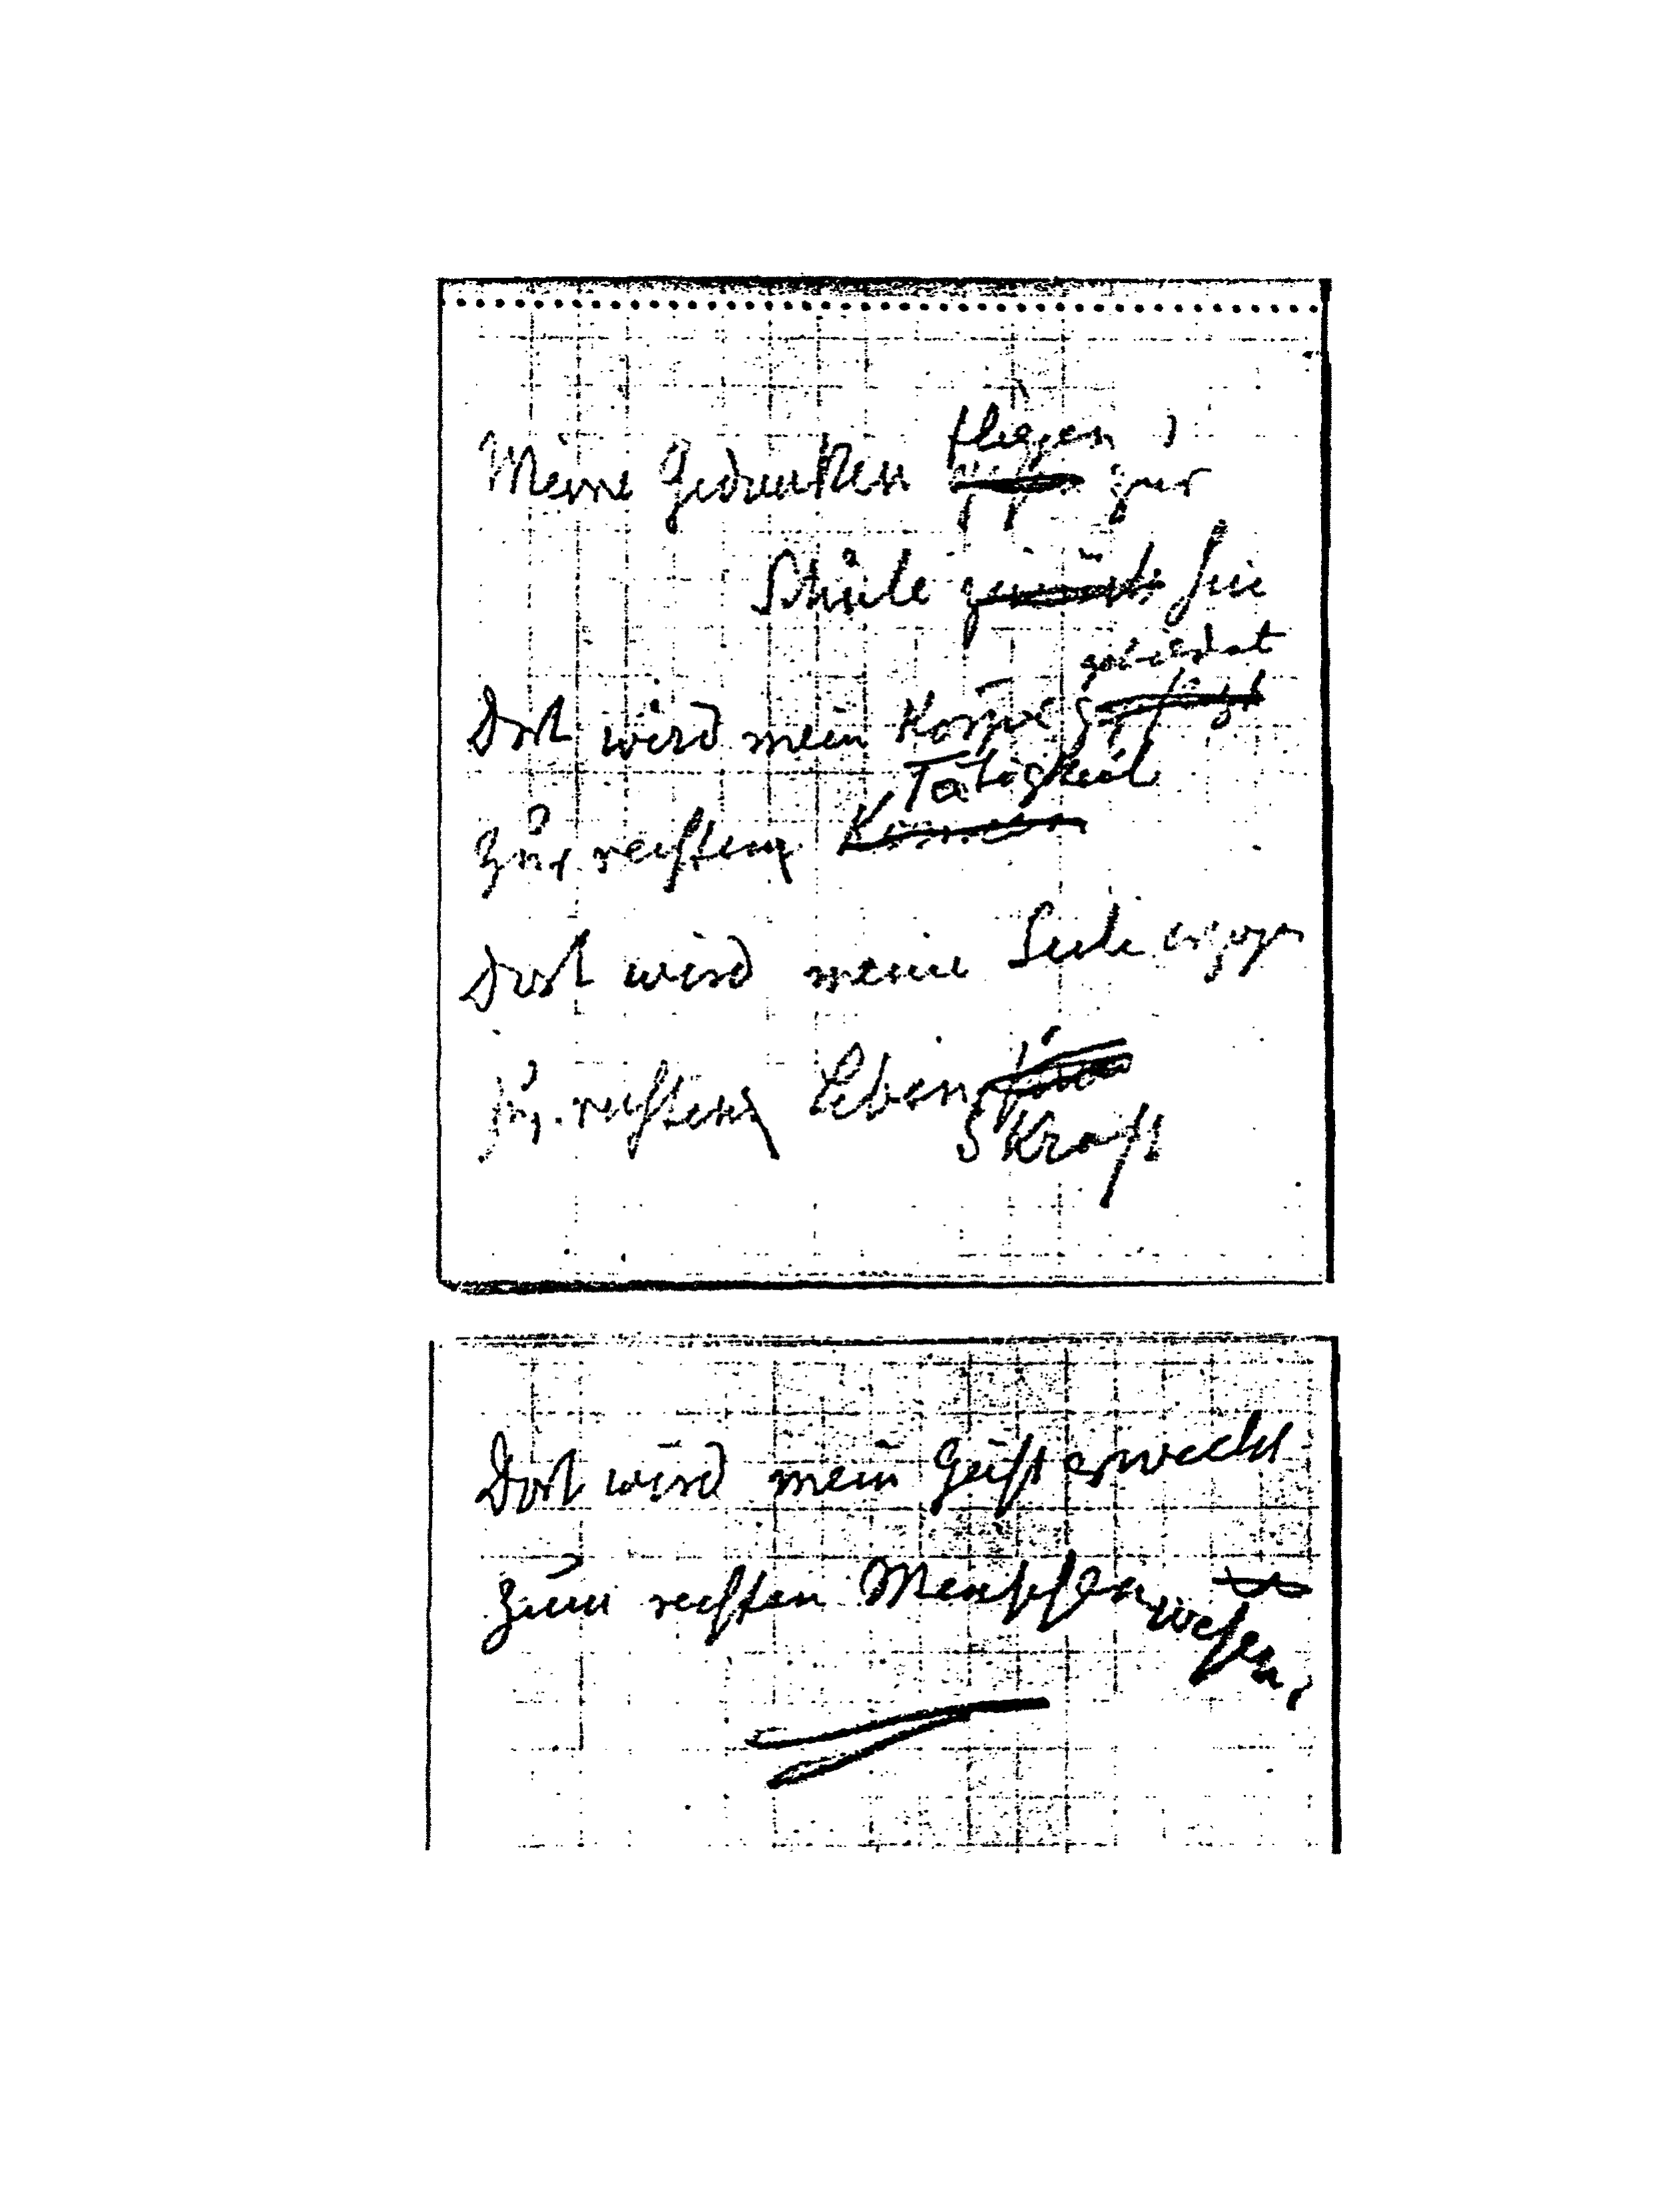 Meine Gedanken fliegen zur
Schule hin
gebildet
Dort wird mein Körper
Tätigkeit
Zur rechten Können
Dort wird meine Seele erzogen
Zur rechten Lebens
Kraft
Dort wird mein Geist erweckt
Zum rechten Menschenwesen.